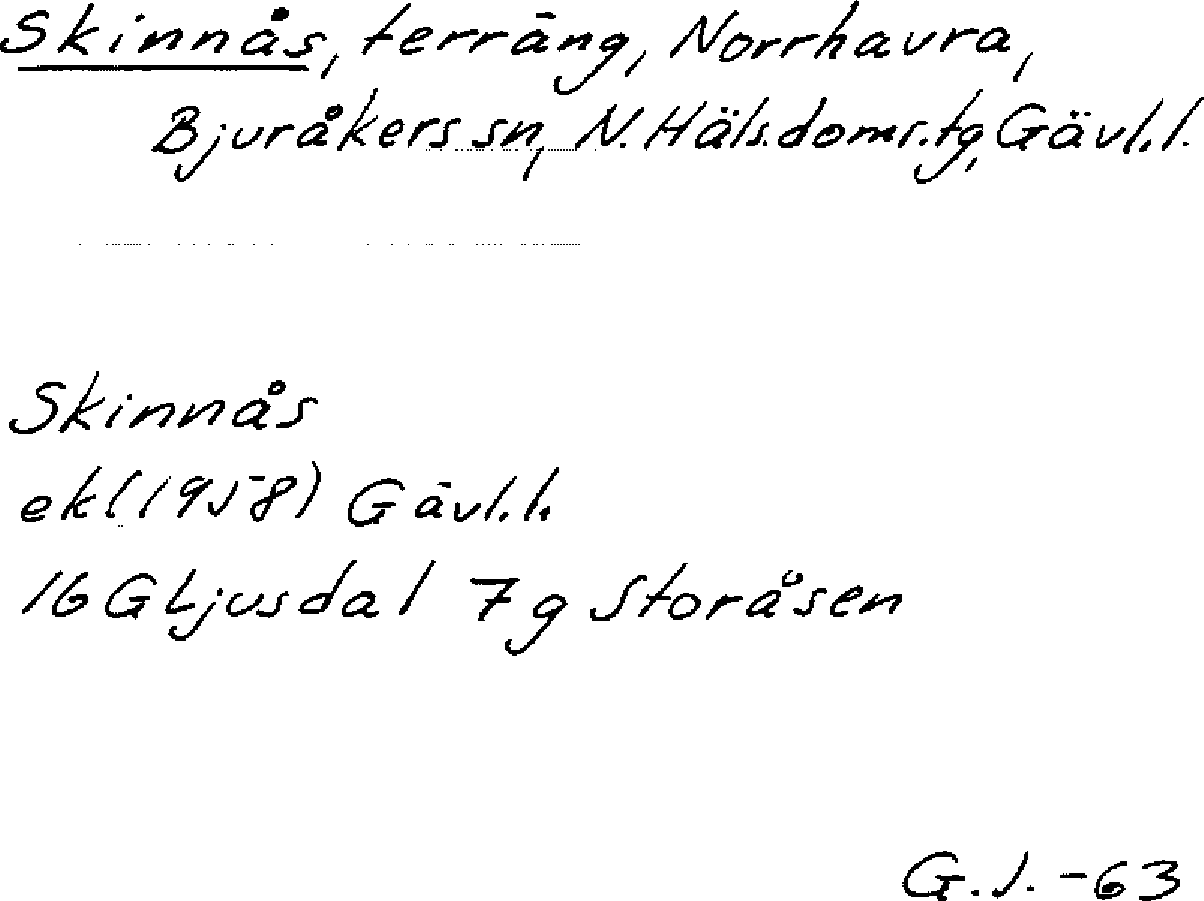 Skinnås, terräng, Norrhavra,
Bjuråkers sn, N. Häls. doms.tg, Gävl.l.
Skinnås
ek (1958) Gävl.l.
16 G Ljusdal 7g Storåsen
G.J. -63